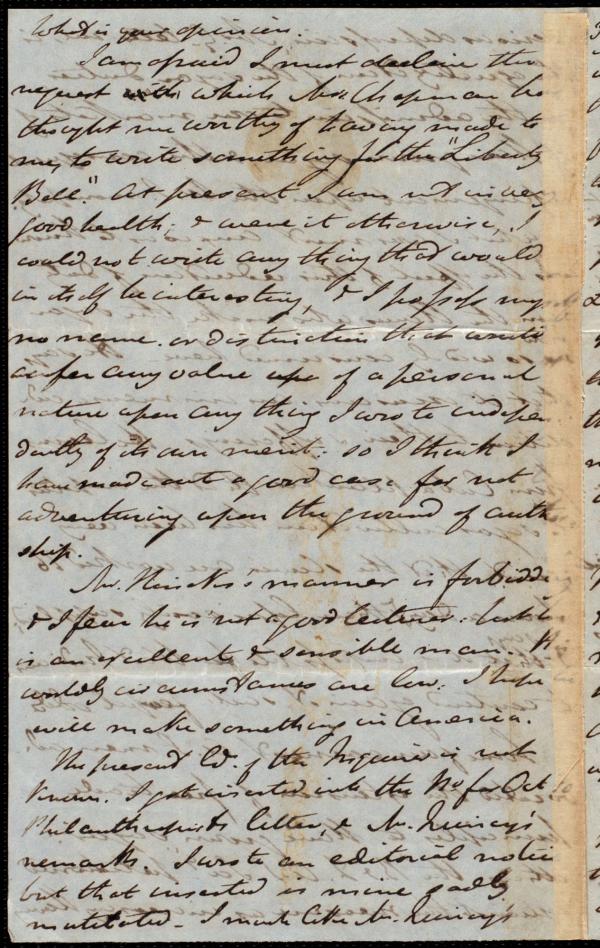 What is your opinion.
I am afraid I must decline the
request with which Mrs. Chapman ha
thought me worthy of having made to
me, to write something for the "Liberty
Bell." At present I am not in very
good health; & were it otherwise, I
could not write any thing that would
in itself be interesting, & I possess my
no name or distinction that would
confer any value upo of a personal
nature upon any thing I wrote indepen
dently of its own merit: so I think I
have made out a good case for not
adventuring upon the ground of auth
ship.
Mr. Hincks's manner is forbiddi
& I fear he is not a good lecturer: but he
is an excellent & sensible man. H
worldly circumstances are low: I hope
will make something in America.
The present Ed. of the Inquirer is not
known. I got inserted into the No for Oct 10
Philanthropist's letter, & Mr. Quincy's
remarks. I wrote an editorial notice
but that inserted is mine sadly
mutilated - I much like Mr. Quincy's